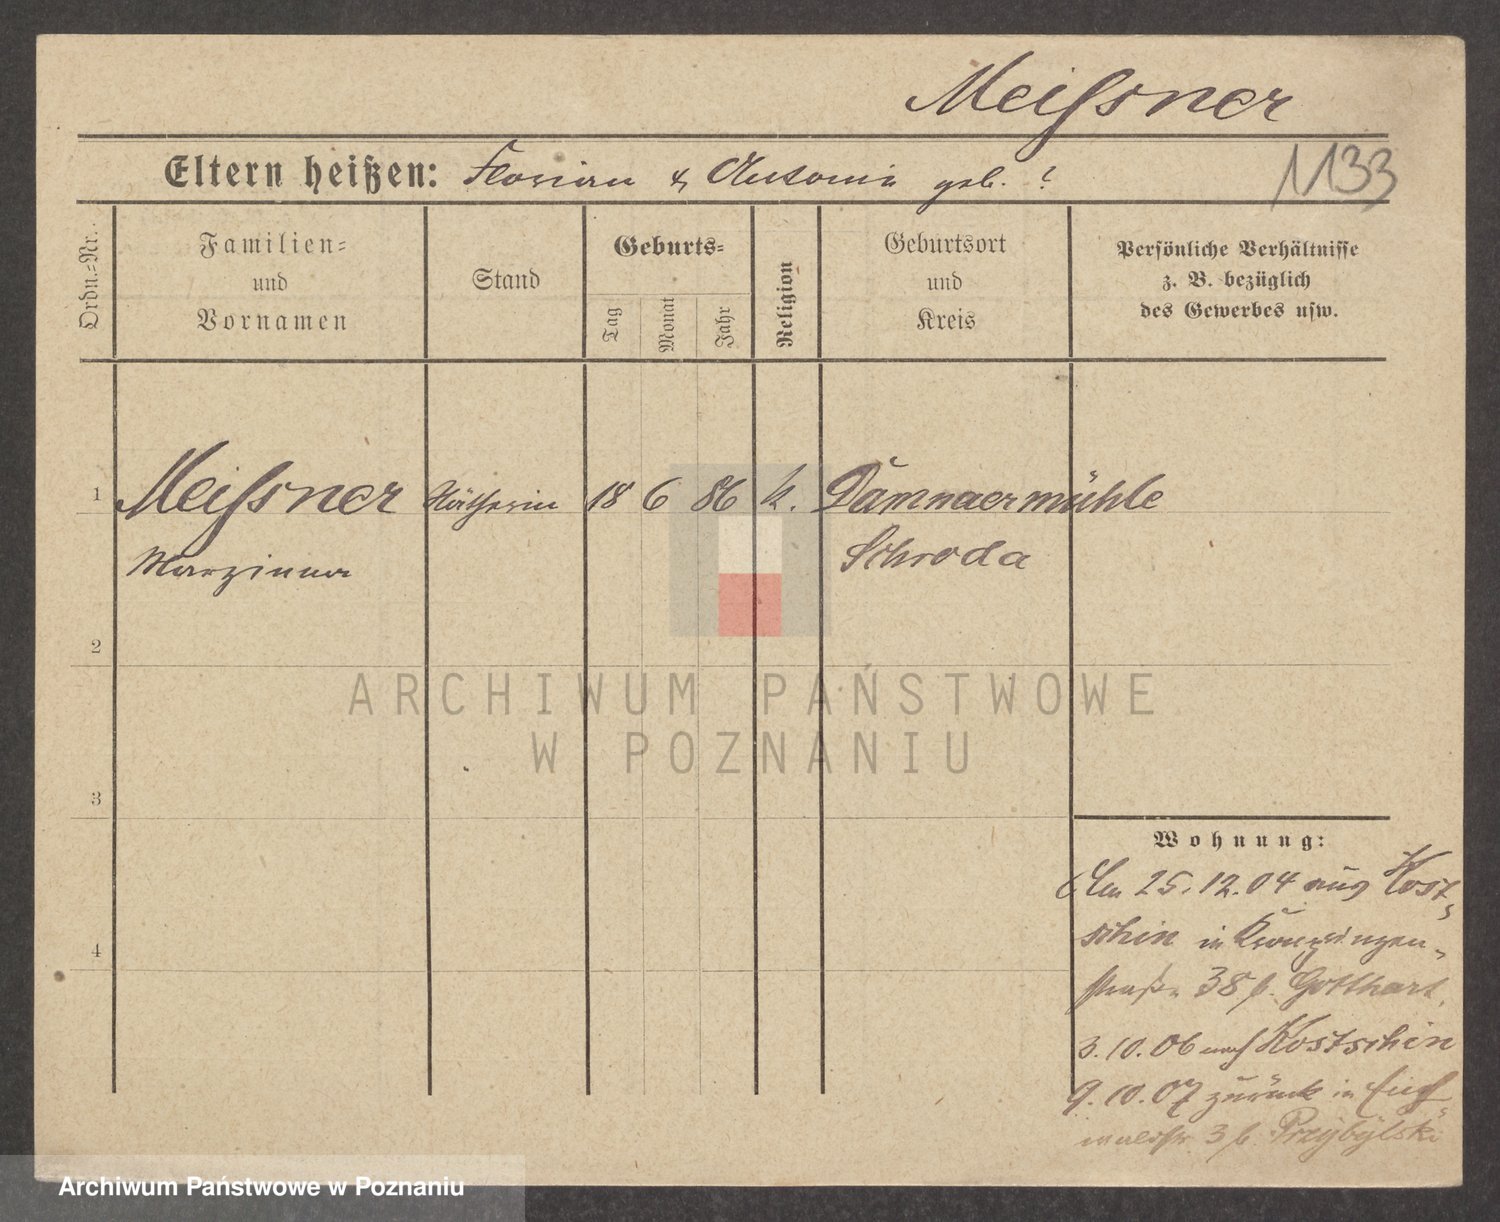 Meißner
Eltern heißen: Florian & Antonie geb. ?
1133
Ordn.=Nr.
Familien=
und
Vornamen
Stand
Geburts=
Tag
Monat
Jahr
Religion
Geburtsort
und
Kreis
Persönliche Verhältnisse
z. B. bezüglich
des Gewerbes usw.
1 Meißner Nätherin 18 6 86 k. Damnaermühle
Marzinna Schroda
2
3
4
Wohnung:
Am 25.12.04 aus Kost-
schin in Kronprinzen-
straße 38 b. Gotthart.
3.10.06 nach Kostschin
9.10.07 zurück in Eich-
waldstr 3 b. Przybylski
ARCHIWUM PAŃSTWOWE
W POZNANIU
Archiwum Państwowe w Poznaniu